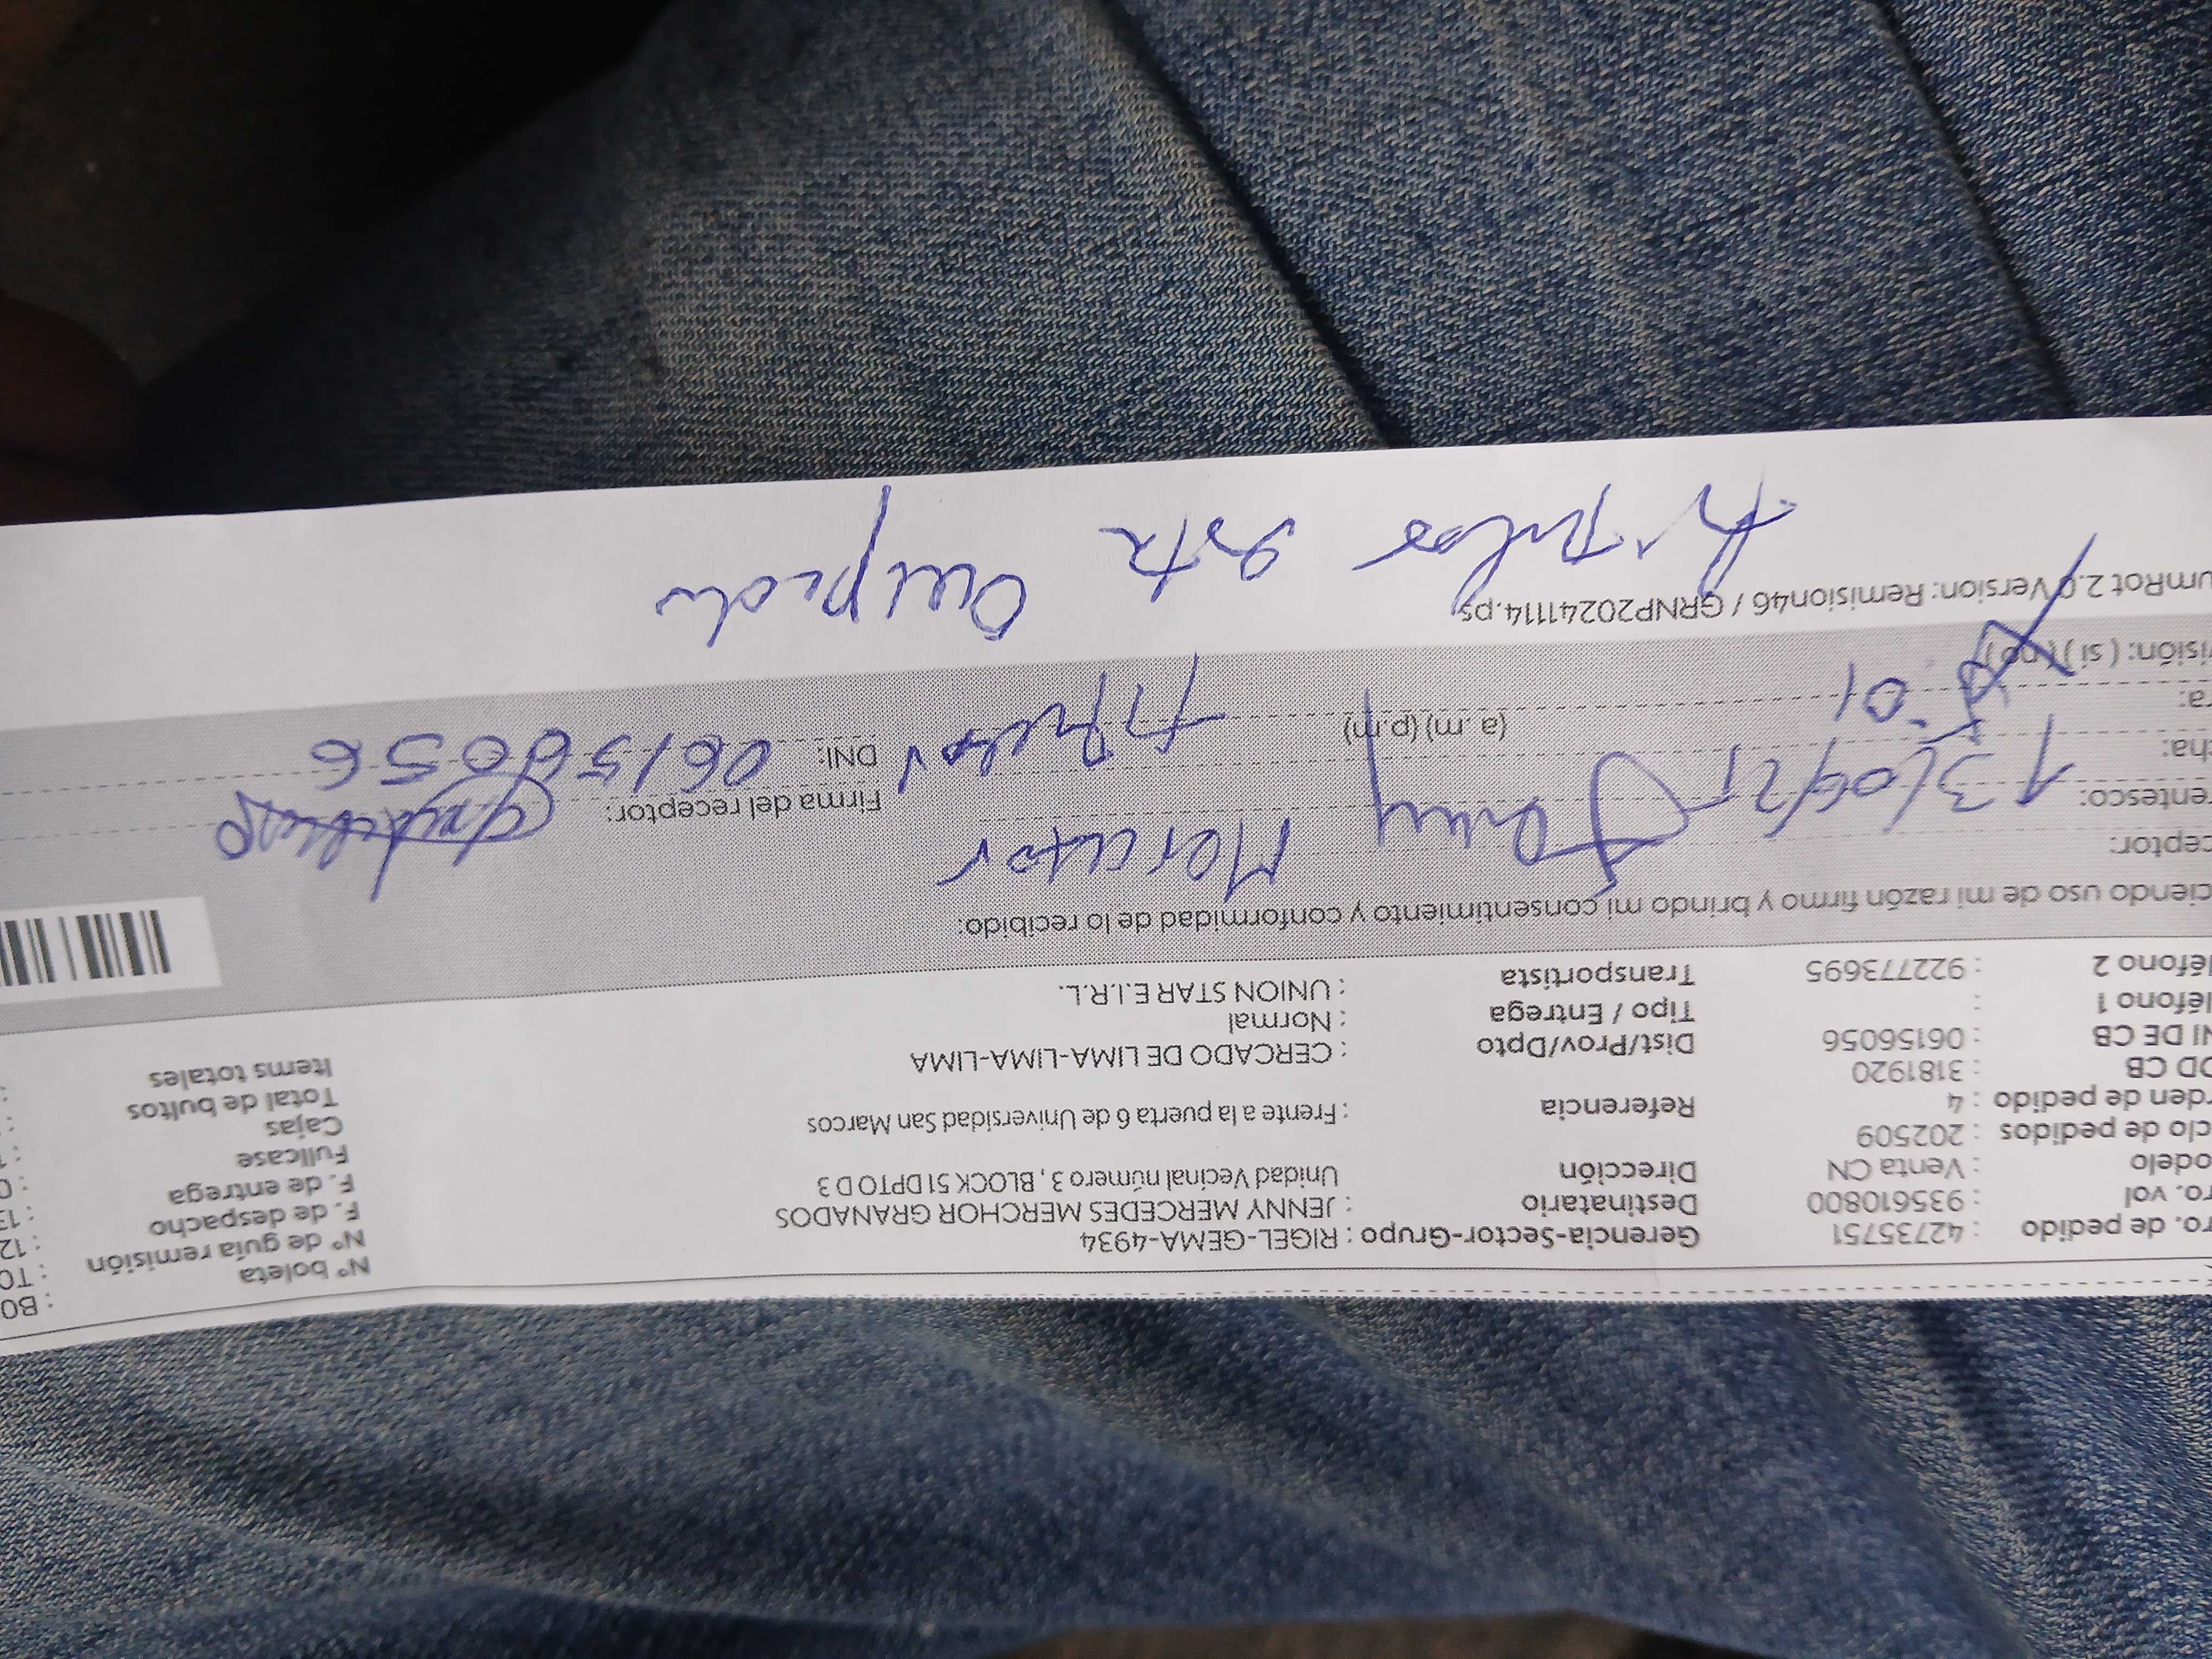 ro. de pedido : 42735751 Gerencia-Sector-Grupo : RIGEL-GEMA-4934 N° boleta : B0
ro. vol : 935610800 Destinatario : JENNY MERCEDES MERCHOR GRANADOS N° de guía remisión : T0
odelo : Venta CN Dirección Unidad Vecinal número 3 , BLOCK 51 DPTO D 3 F. de despacho : 12
clo de pedidos : 202509 F. de entrega : 13
rden de pedido : 4 Referencia : Frente a la puerta 6 de Universidad San Marcos Fullcase : 0
OD CB : 3181920 Cajas
NI DE CB : 06156056 Dist/Prov/Dpto : CERCADO DE LIMA-LIMA-LIMA Total de bultos
léfono 1 : Tipo / Entrega : Normal Items totales
léfono 2 : 922773695 Transportista : UNION STAR E.I.R.L.
ciendo uso de mi razón firmo y brindo mi consentimiento y conformidad de lo recibido:
ceptor: Jenny
entesco: Firma del receptor:
cha: 13/09/25 DNI: 06156056
ra: 5:01 (a. m) (p.m)
isión: ( si ) ( no )
umRot 2.0 Version: Remision46 / GRNP20241114.ps